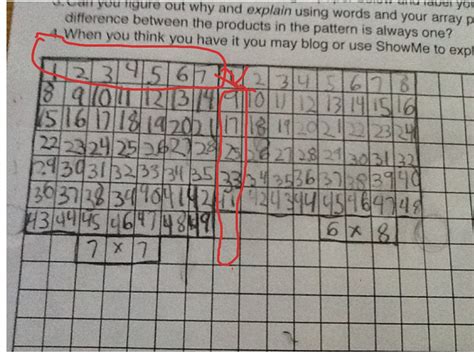 and label you
3. Can you figure out why and explain using words and your array p
difference between the products in the pattern is always one?
4. When you think you have it you may blog or use ShowMe to expl
1 2 3 4 5 6 7 1 2 3 4 5 6 7 8
8 9 10 11 12 13 14 9 10 11 12 13 14 15 16
15 16 17 18 19 20 21 17 18 19 20 21 22 23 24
22 23 24 25 26 27 28 25 26 27 28 29 30 31 32
29 30 31 32 33 34 35 33 34 35 36 37 38 39 40
36 37 38 39 40 41 42 41 42 43 44 45 46 47 48
43 44 45 46 47 48 49 6 x 8
7 x 7